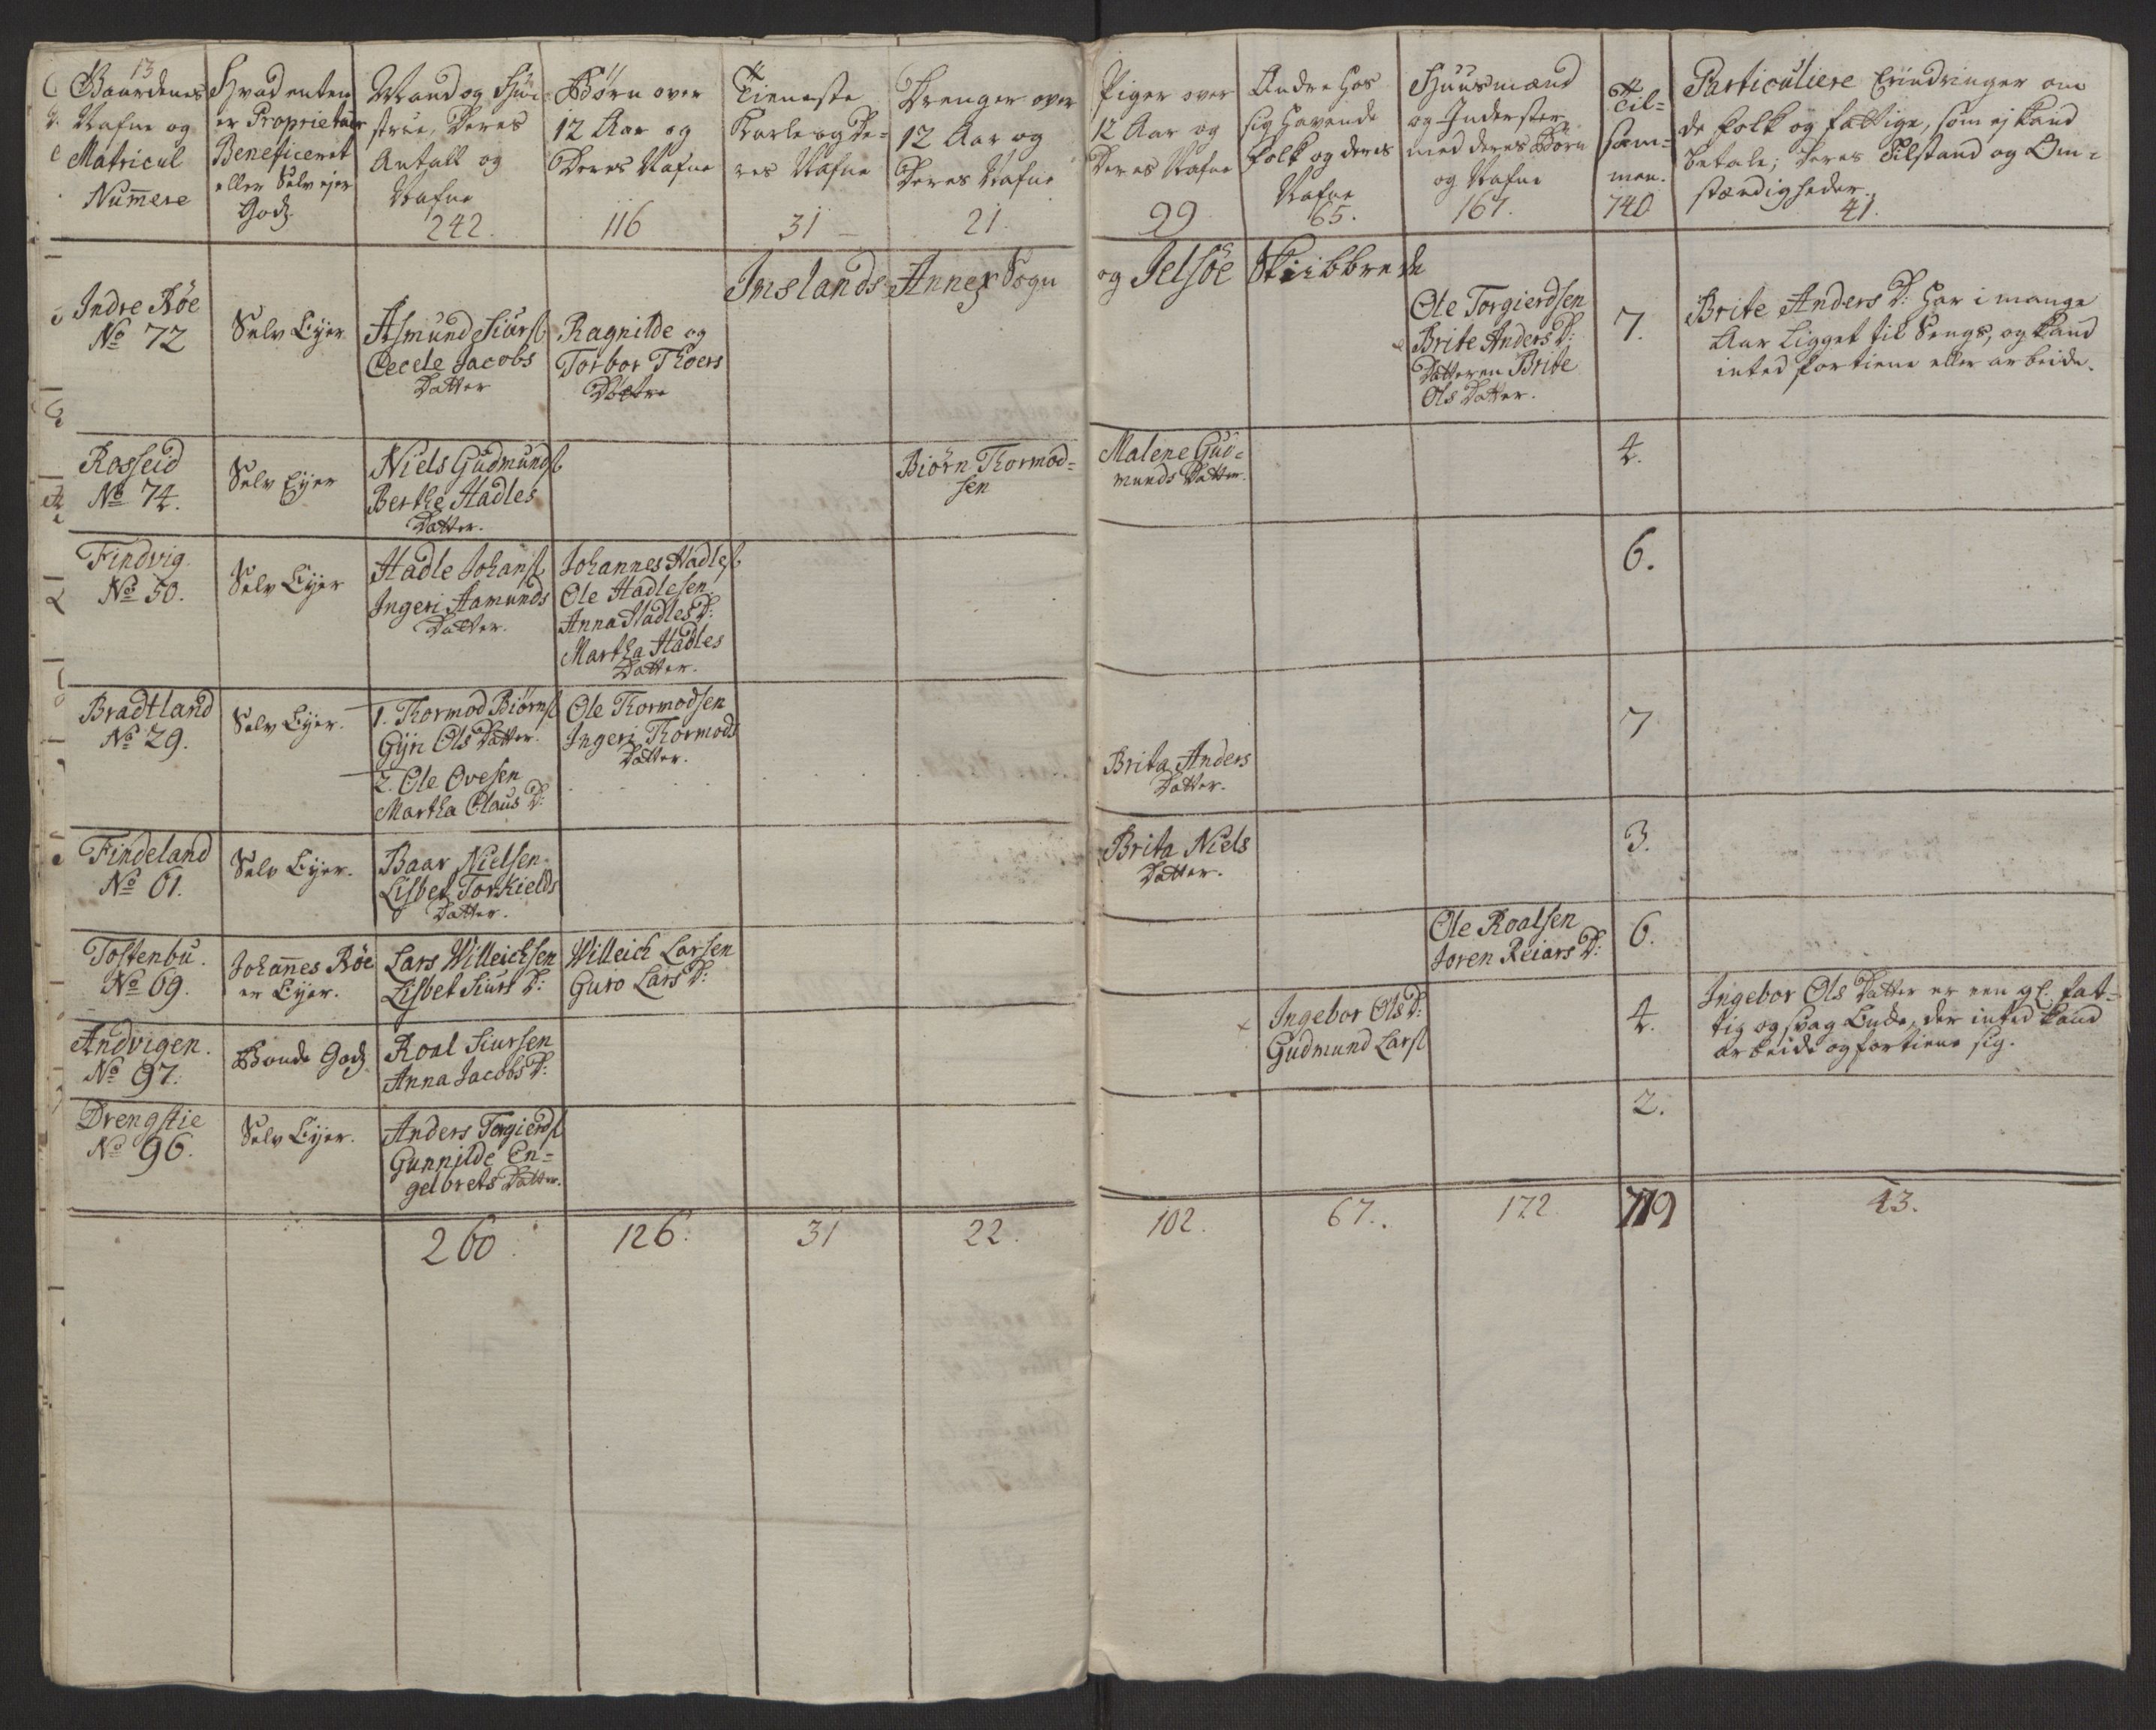 13
Gaardenes
Nafne og
Matricul
Num̅ere
Hvad enten
er Proprietair
Beneficeret
eller Selv ejer
Godz.
Mand og Hu-
strue, Deres
Antall og
Nafne
242.
Børn over
12 Aar og
Deres Nafne
116
Tieneste
Karle og De-
res Nafne
31
Drenger over
12 Aar og
Deres Nafne
21.
Piger over
12 Aar og
Deres Nafne
99
Andre hos
sig havende
folk og deres
Nafne
65.
Huusmænd
og Inderster
med deres Børn
og Nafne
167.
Til-
sam-
men.
740
Particuliere Erindringer om
de folk og fattige, som ej kand
betale; deres Tilstand og Om-
stændigheder.
41.
Imslands Annex Sogn og Jelsøe Skibbrede
Indre Røe
No 72
Selv Eyer
Asmund Siurs.
Cecele Jacobs
Datter
Ragnilde og
Torbor Thoers
Døttre
Ole Torgierdsen
Brite Anders D:
Datteren Brite
Ols Datter.
7.
Brite Anders D: har i mange
Aar Ligget til Sengs, og kand
inted fortiene eller arbeide.
Rosseid
No 74.
Selv Eyer
Niels Gudmunds.
Berthe Hadles
Datter.
Biørn Thormod-
sen
Malene Gud-
munds Datter.
4.
Findvig
No 50.
Selv Eyer
Hadle Johans.
Ingeri Aamunds
Datter.
Johannes Hadles.
Ole Hadlesen.
Anna Hadles D:
Martha Hadles
Datter.
6.
Bradtland
No 29.
Selv Eyer.
1. Thormod Biørns.
Gijn Ols Datter.
2. Ole Ovesen
Martha Olaus D:
Ole Thormodsen
Ingeri Thormods
Datter.
Brita Anders
Datter.
7
Findeland
No 61.
Selv Eyer.
Baar Nielsen.
Lisbet Torkields
Datter.
Brita Niels
Datter.
3.
Tostenbu.
No 69.
Johan̅es Røe
er Eyer.
Lars Willeichsen
Lisbet Siurs D:
Willeich Larsen
Guro Lars D:
Ole Roalsen
Joren Reiars D:
6.
Andvigen.
No 97.
Bonde Godz
Roal Siursen
Anna Jacobs D:
Ingebor Ols D:
Gudmund Lars.
4.
Ingebor Ols Datter er een gl. fat-
tig og svag Enke, der inted kand
arbeide og fortiene sig.
Drengstie
No 96.
Selv Eyer.
Anders Torgierds.
Gunnilde En-
gelbrets Datter.
2.
260.
126.
31
22.
102.
67.
172
779
43.